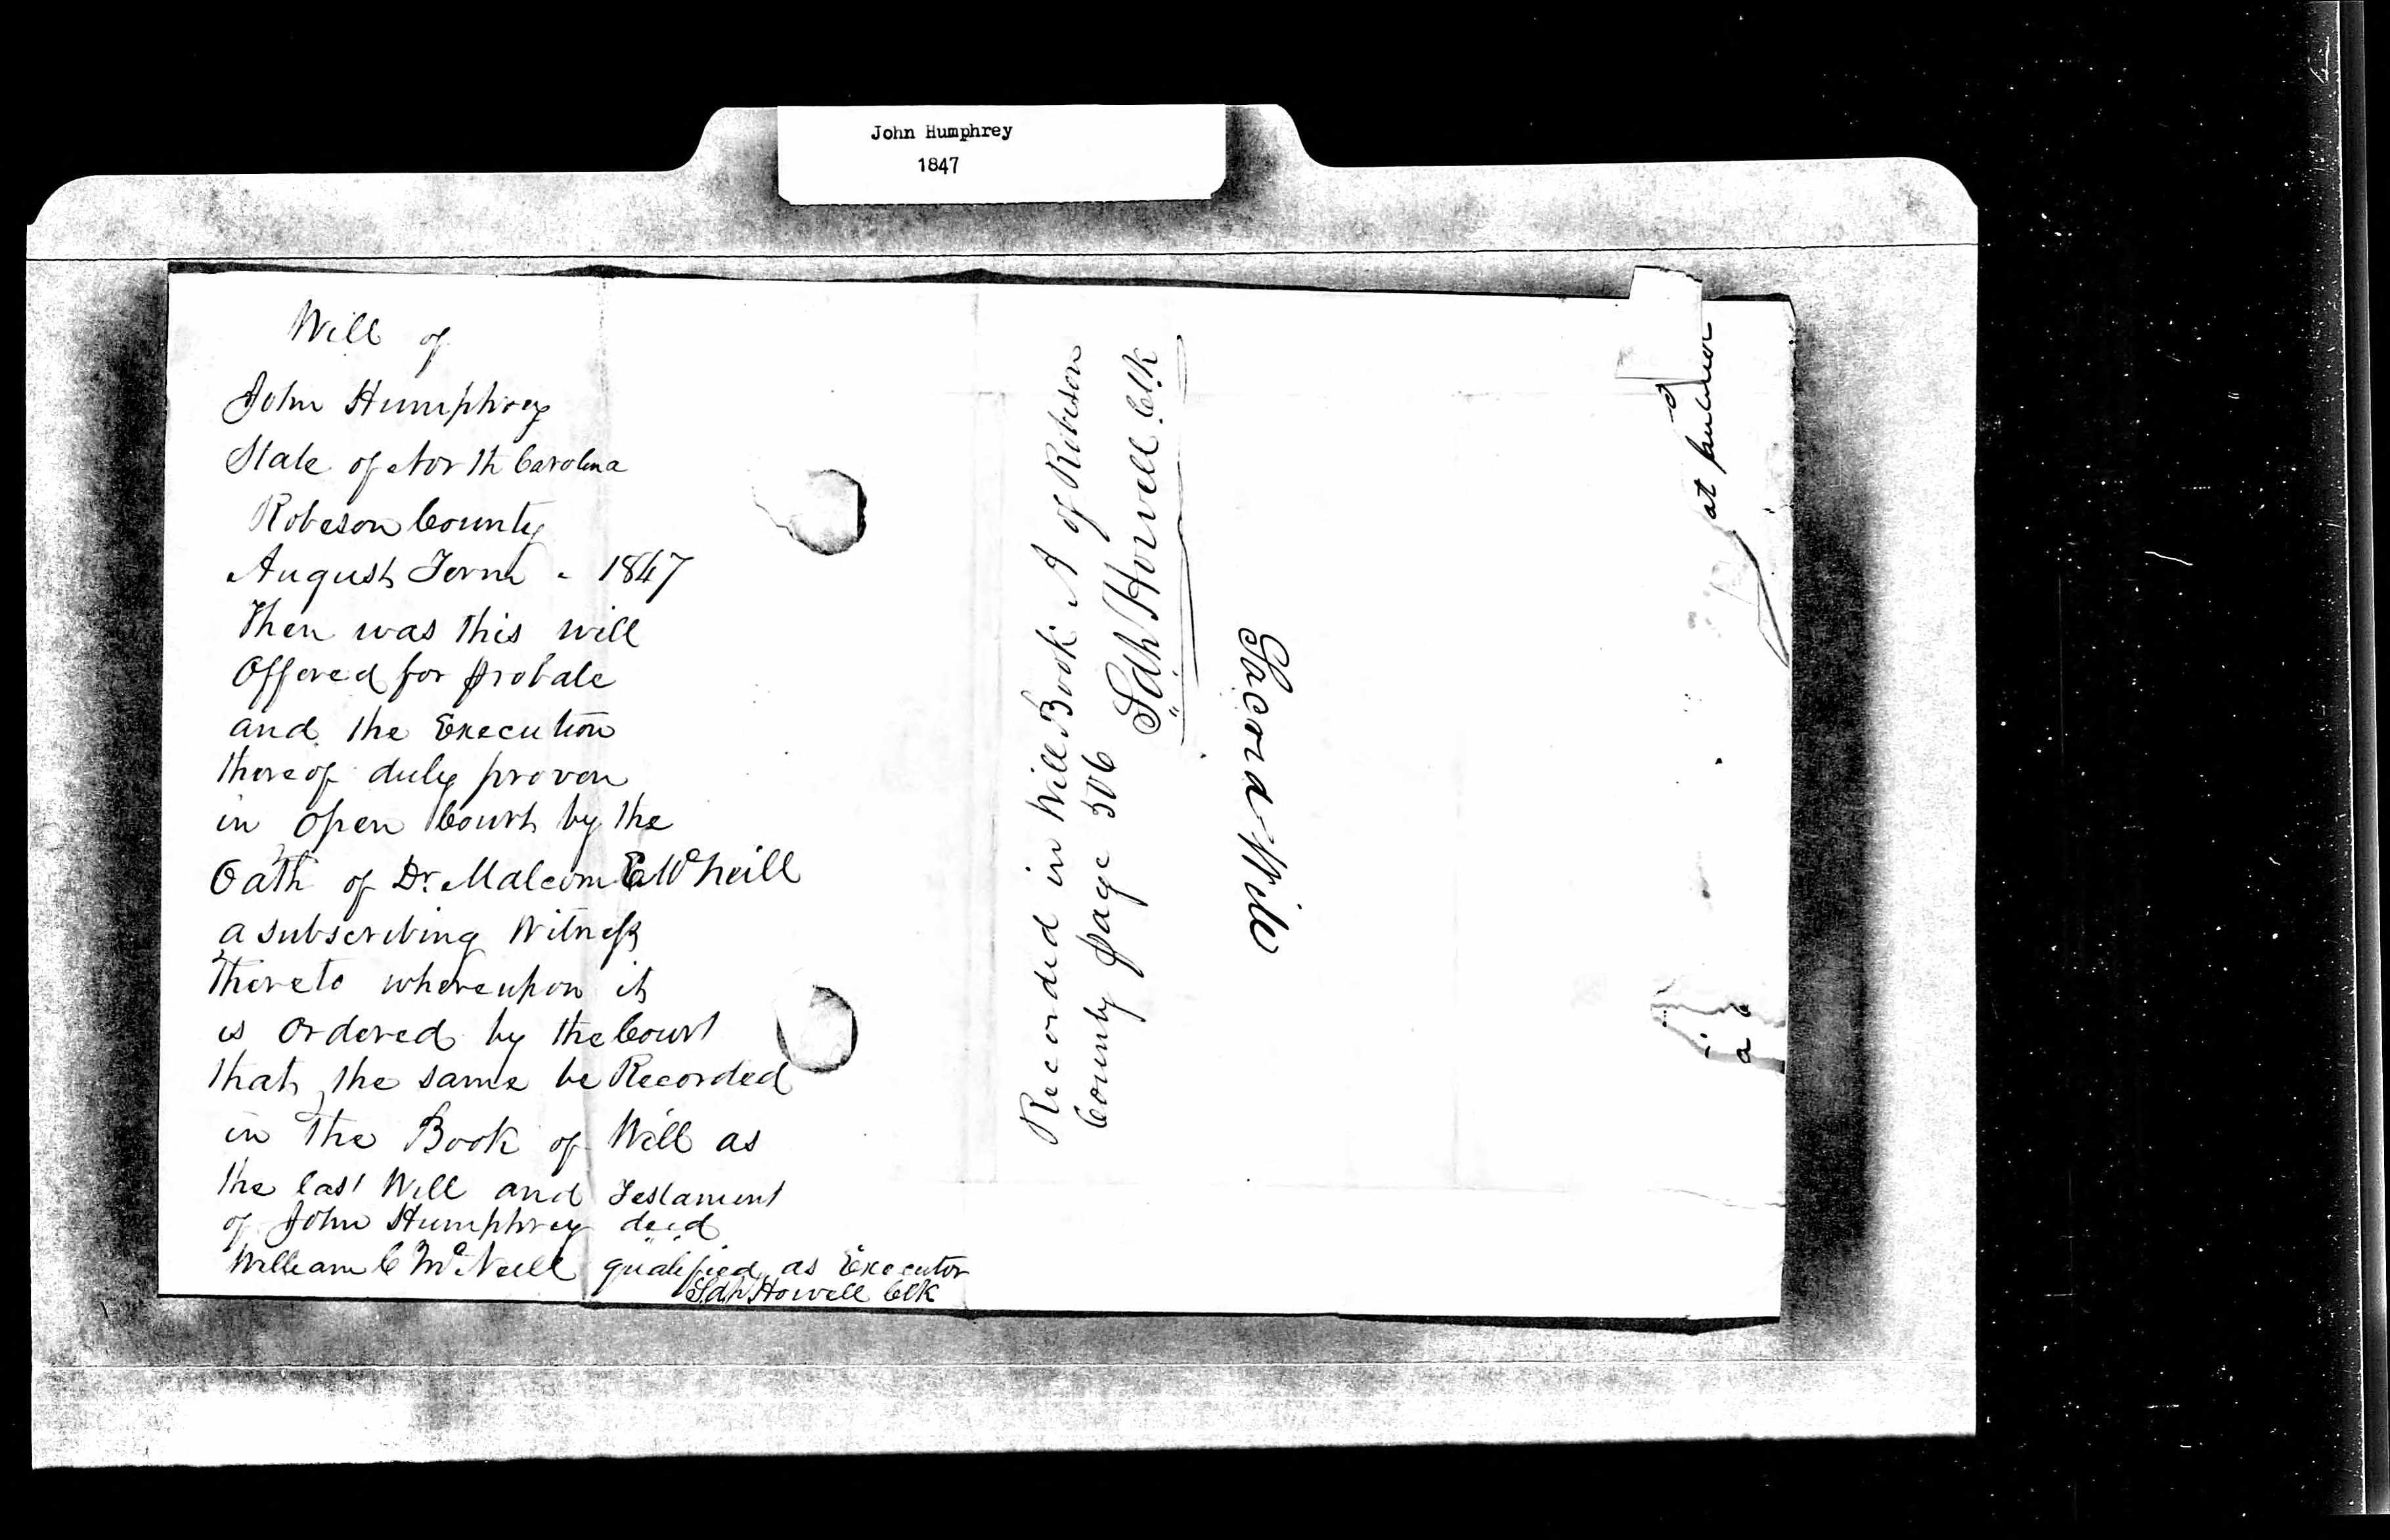 John Humphrey
1847
Will of
John Humphrey
State of North Carolina
Robeson County
August Term - 1847
Then was this will
Offered for probate
and the Execution
thereof duly proven
in open Court by the
Oath of Dr. Malcom McNeill
a subscribing Witness
thereto whereupon it
is Ordered by the Court
that the same be Recorded
in the Book of Will as
the last Will and Testament
of John Humphrey decd
William C McNeill qualified as Executor
Howell Clk
Recorded in Will Book A of Robeson
County page 506
Howell Clk
Will
at
a